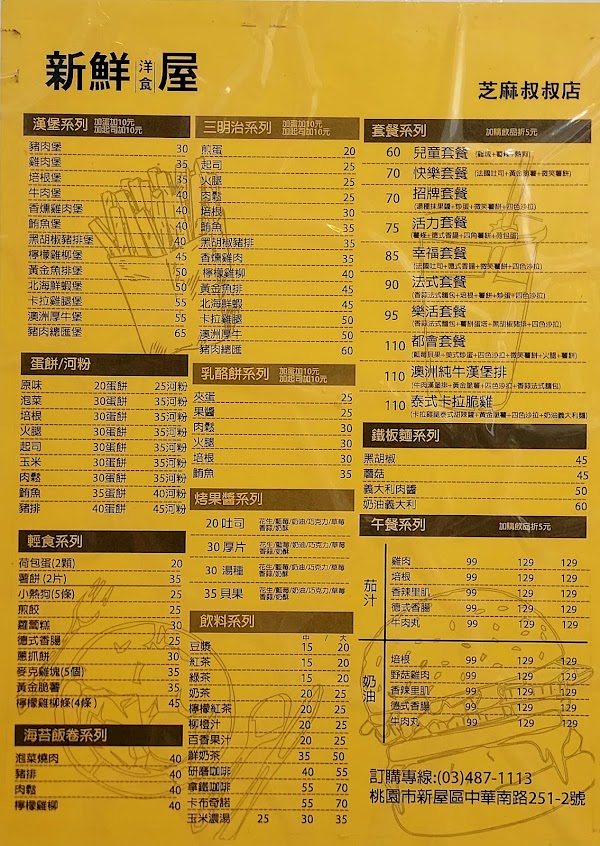 新鮮洋食屋
芝麻叔叔店
漢堡系列 加蛋加10元 加起司加10元
豬肉堡 30
雞肉堡 35
培根堡 35
牛肉堡 40
香燻雞肉堡 40
鮪魚堡 40
黑胡椒豬排堡 40
檸檬雞柳堡 45
黃金魚排堡 50
北海鮮蝦堡 50
卡拉雞腿堡 55
澳洲厚牛堡 55
豬肉總匯堡 65
蛋餅/河粉
原味 20蛋餅 25河粉
泡菜 30蛋餅 35河粉
培根 30蛋餅 35河粉
火腿 30蛋餅 35河粉
起司 30蛋餅 35河粉
玉米 30蛋餅 35河粉
肉鬆 30蛋餅 35河粉
鮪魚 35蛋餅 40河粉
豬排 40蛋餅 45河粉
輕食系列
荷包蛋(2顆) 20
薯餅(2片) 35
小熱狗(5條) 25
煎餃 25
蘿蔔糕 30
德式香腸 25
蔥抓餅 30
麥克雞塊(5個) 35
黃金脆薯 35
檸檬雞柳條(4條) 45
海苔飯卷系列
泡菜燒肉 40
豬排 40
肉鬆 40
檸檬雞柳 40
三明治系列 加蛋加10元 加起司加10元
煎蛋 20
起司 25
火腿 25
肉鬆 25
培根 30
鮪魚 35
黑胡椒豬排 35
香燻雞肉 35
檸檬雞柳 40
黃金魚排 45
北海鮮蝦 45
卡拉雞腿 50
澳洲厚牛 50
豬肉總匯 60
乳酪餅系列 加蛋加10元 加起司加10元
夾蛋 25
果醬 25
肉鬆 30
火腿 30
培根 30
鮪魚 35
烤果醬系列
20 吐司 花生/藍莓/奶油/巧克力/草莓 香蒜/奶酥
30 厚片 花生/藍莓/奶油/巧克力/草莓 香蒜/奶酥
30 湯種 花生/藍莓/奶油/巧克力/草莓 香蒜/奶酥
35 貝果 花生/藍莓/奶油/巧克力/草莓 香蒜/奶酥
飲料系列
中 / 大
豆漿 15 20
紅茶 15 20
綠茶 15 20
奶茶 20 25
檸檬紅茶 20 25
柳橙汁 20 25
百香果汁 20 25
鮮奶茶 35 50
研磨咖啡 40 55
拿鐵咖啡 55 70
卡布奇諾 55 70
玉米濃湯 25 30 35
套餐系列 加購飲品折5元
60 兒童套餐
70 快樂套餐 (法國吐司+黃金脆薯+微笑薯餅)
70 招牌套餐
(漂種抹果醬+炒蛋+微笑薯餅+四色沙拉)
75 活力套餐
(薯條+德式香腸+四角薯餅+荷包蛋)
85 幸福套餐
(法國吐司+德式香腸+微笑薯餅+四色沙拉)
90 法式套餐
(香蒜法式麵包+培根+薯餅+炒蛋+四色沙拉)
95 樂活套餐
(香蒜法式麵包+薯餅蛋塔+黑胡椒豬排+四色沙拉)
110 都會套餐
(藍莓貝果+美式炒蛋+四色沙拉+微笑薯餅+火腿+薯餅)
110 澳洲純牛漢堡排
(牛肉漢堡排+黃金脆薯+四色沙拉+香蒜法式麵包)
110 泰式卡拉脆雞
(卡拉雞腿泰式甜辣醬+黃金脆薯+四色沙拉+奶油義大利麵)
鐵板麵系列
黑胡椒 45
蘑菇 45
義大利肉醬 50
奶油義大利 60
午餐系列 加購飲品折5元
茄汁
雞肉 99 129 129
培根 99 129 129
香辣里肌 99 129 129
德式香腸 99 129 129
牛肉丸 99 129 129
奶油
培根 99 129 129
野菇雞肉 99 129 129
香辣里肌 99 129 129
德式香腸 99 129 129
牛肉丸 99 129 129
訂購專線:(03)487-1113
桃園市新屋區中華南路251-2號